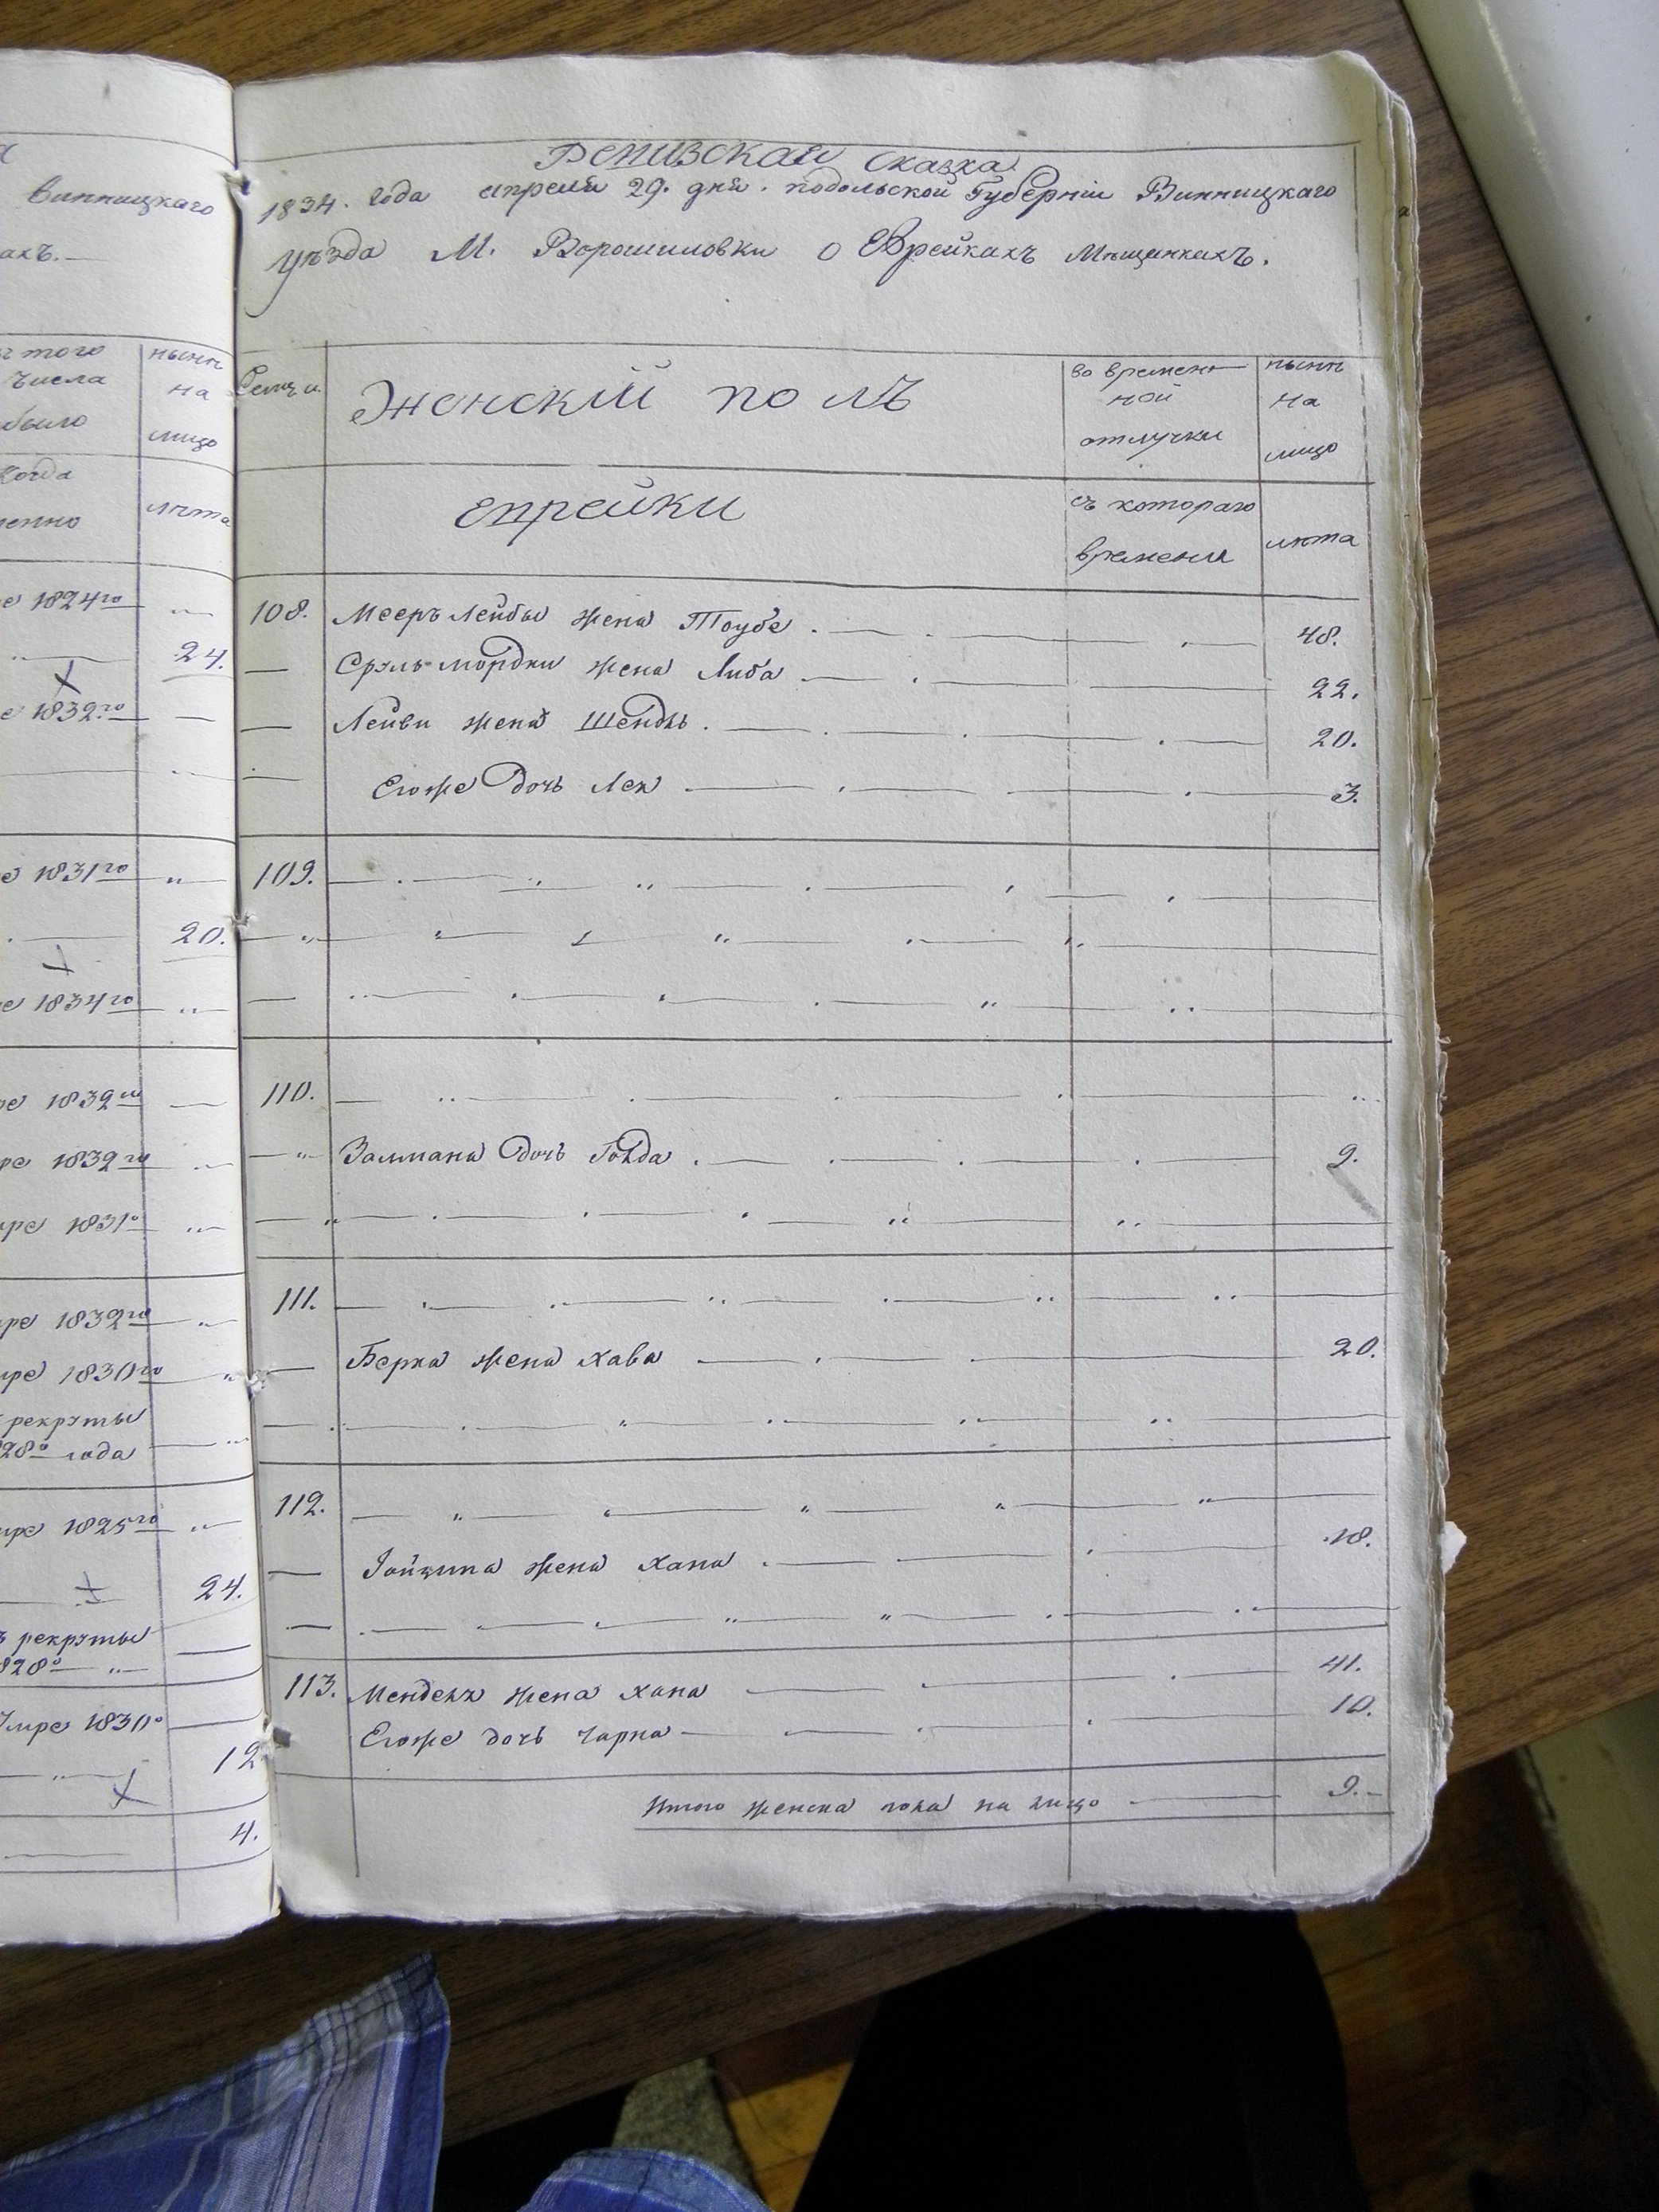 Винницкаго
ахъ.
того
числа
было
нынѣ
на
лицо
когда
лѣта
1824го
24.
1832го
1831го
20.
1834го
1832го
1832го
1831го
умре 1832го
умре 1830го
рекруты
28го года
умре 1825го
24.
рекруты
828го
Умре 1830го
12
4.
Ревизская сказка
1834. года апреля 29. дня. подольской Губерніи Винницкаго
уѣзда М. Ворошиловки о Еврейкахъ Мѣщанкахъ.
Женскій полъ
во времен
ной
отлучки
нынѣ
на
лицо
еврейки
съ котораго
времени
лѣта
108. Мееръ Лейбы жена Тоубе 48.
Сруль мордки жена Либа 22.
Лейви жена Шендль 20.
Егоже дочь Лея 3.
109.
110.
Залмана дочь Голда 9.
111.
Берка жена Хава 20.
112.
жена Хана 18.
113. Менделя жена Хана 41.
Егоже дочь Чарна 10.
Итого женска пола на лицо 9.